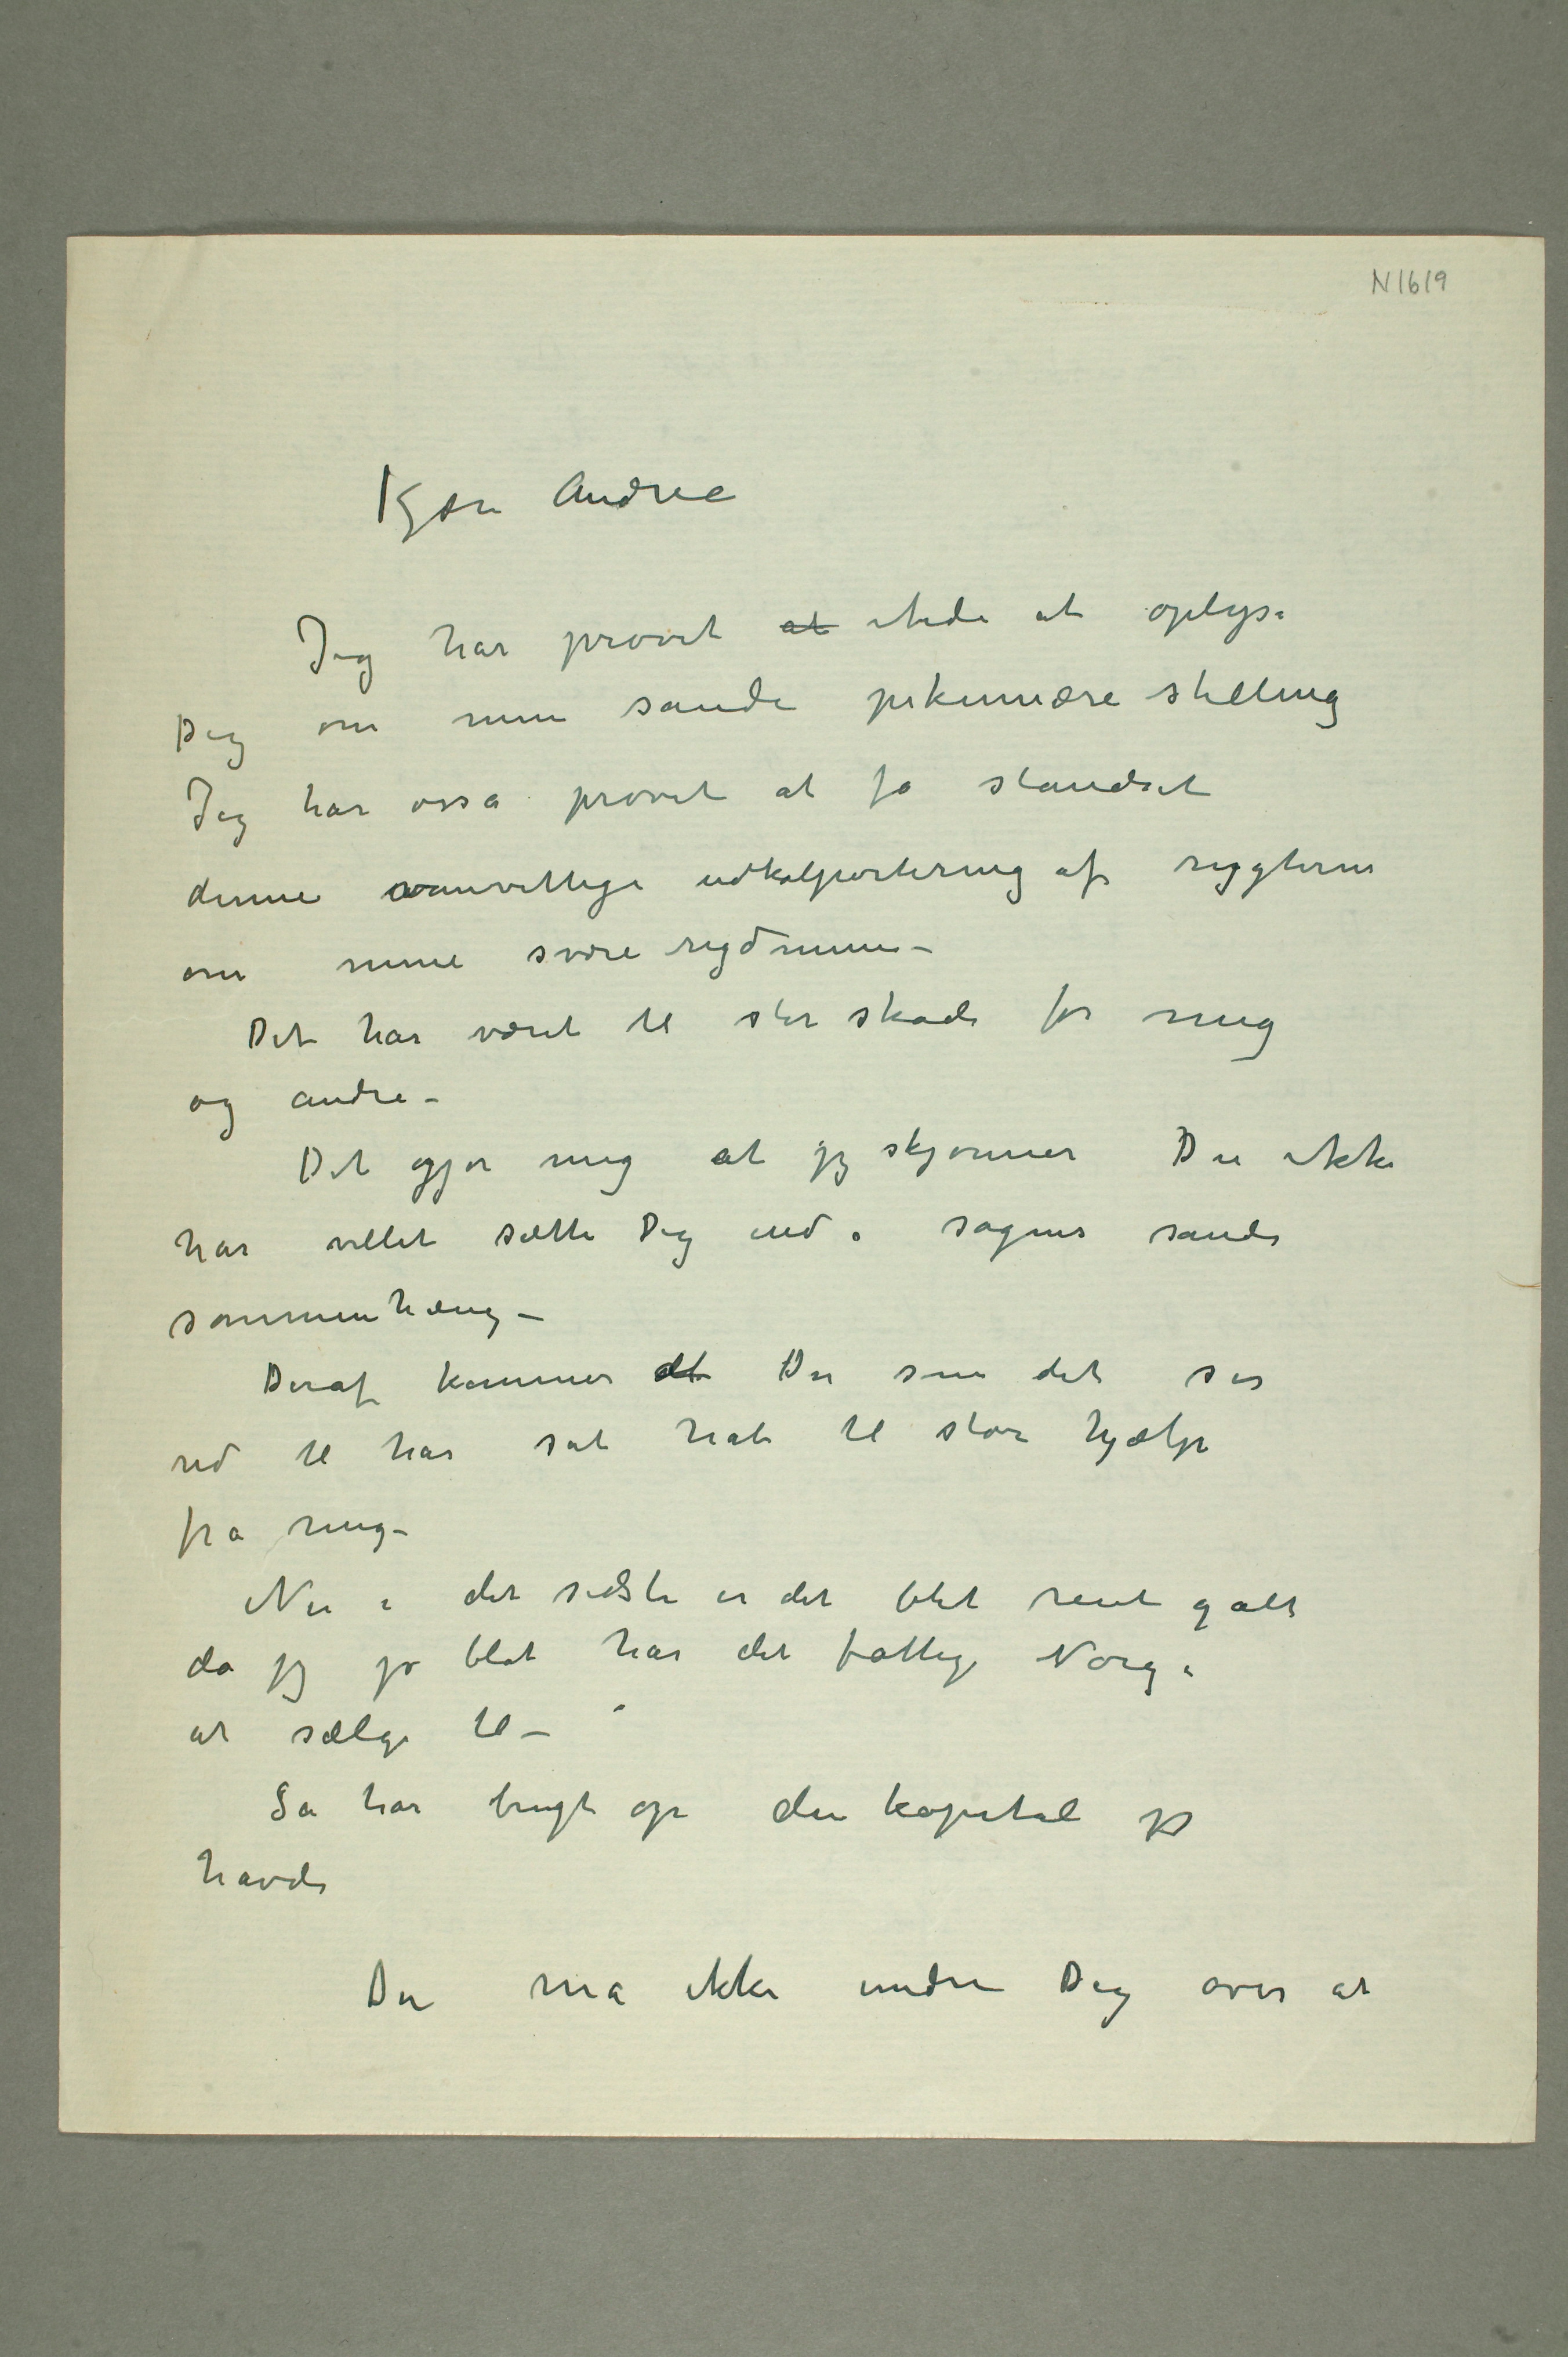 N1619
Kjære Andrea
Jeg har prøvet at itide at oplyse
Dig om min sande pekuniære stilling
Jeg har osså prøvet at få standset
denne vanvittige udkolportering af rygterne
om mine svære rigdomme –
Det har været til stor skade for mig
og andre –
Det gjør mig at jeg skjønner Du ikke
har villet sætte Dig ind i sagens sande
sammenhæng –
Deraf kommer det Du som det ser
ud til har sat hat til stor hjælp
fra mig –
Nu i det sidste er det blit rent galt
da jeg jo blot har det fattige Norge
at sælge til –
Så har brugt op den kapital jeg
havde
Du må ikke undre Dig over at